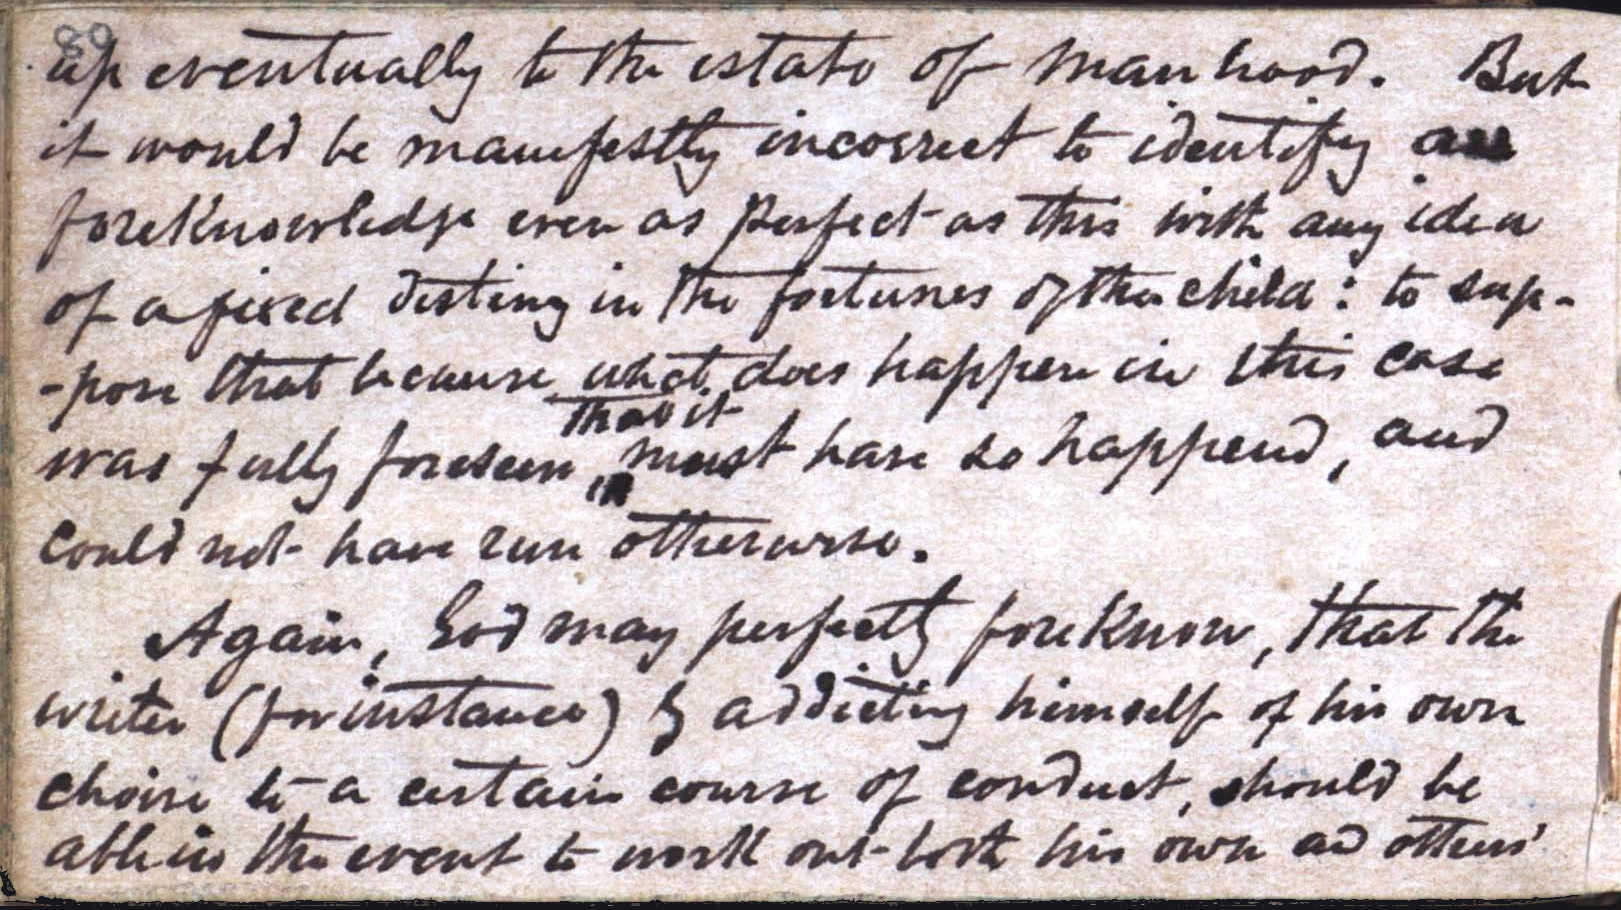 89
up eventually to the estate of manhood. But
it would be manifestly incorrect to identify a
foreknowledge even as perfect as this with any idea
of a fixed destiny in the fortunes of the child: to sup-
-pose that because what does happen in this case
that it
was fully foreseen, must have so happend, and
could not have run otherwise.
Again, God may perfectly foreknow, that the
writer (for instance) by addicting himself of his own
choise to a certain course of conduct, should be
able in the event to work out both his own ad others'